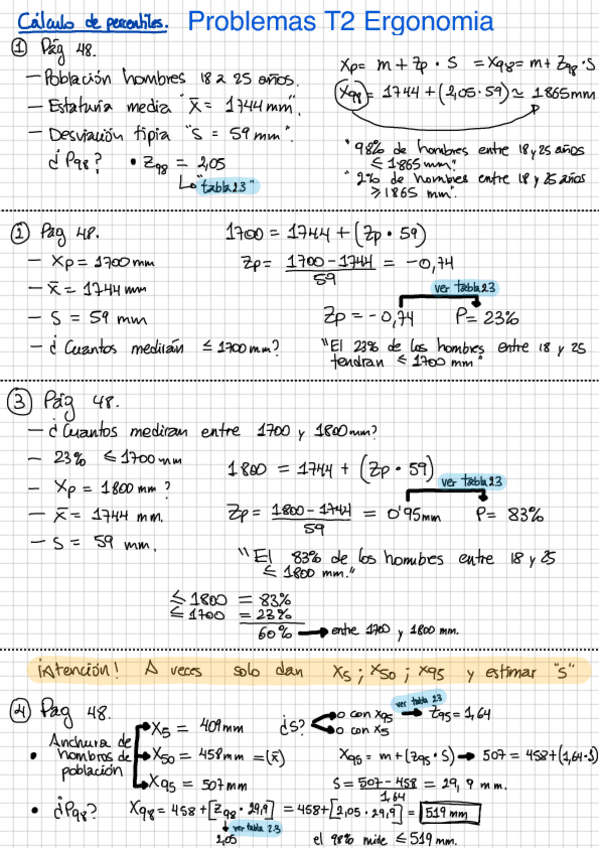 Cálculo de percentiles. Problemas T2 Ergonomia
① Pág 48.
– Población hombres 18 a 25 años.
– Estaturia media "x̄ = 1744 mm".
– Desviación tipia "s = 59 mm".
¿P98? • Z98 = 2,05
"tabla 2.3"
Xp = m + Zp · S = X98 = m + Z98 · S
X98 = 1744 + (2,05 · 59) ≃ 1865 mm
"98% de hombres entre 18 y 25 años
≤ 1865 mm."
"2% de hombres entre 18 y 25 años
≥ 1865 mm".
② Pag 48.
– Xp = 1700 mm
– x̄ = 1744 mm
– S = 59 mm
– ¿Cuantos medirán ≤ 1700 mm?
1700 = 1744 + (Zp · 59)
Zp = 1700 – 1744 / 59 = –0,74
ver tabla 2.3
Zp = – 0,74 P = 23%
"El 23% de los hombres entre 18 y 25
tendran ≤ 1700 mm"
③ Pág 48.
– ¿Cuantos mediran entre 1700 y 1800 mm?
– 23% ≤ 1700 mm
– Xp = 1800 mm ?
– x̄ = 1744 mm.
– S = 59 mm.
1800 = 1744 + (Zp · 59)
ver tabla 2.3
Zp = 1800 – 1744 / 59 = 0'95 mm P = 83%
"El 83% de los hombres entre 18 y 25
≤ 1800 mm."
≤ 1800 = 83%
≤ 1700 = 23%
60% → entre 1700 y 1800 mm.
¡Atención! A veces solo dan X5 ; X50 ; X95 y estimar "S"
④ Pag 48.
• Anchura de
hombros de
población
X5 = 409 mm
X50 = 458 mm = (x̄)
X95 = 507 mm
¿S?
o con X95 → Z95 = 1,64
ver tabla 2.3
o con X5
X95 = m + (Z95 · S) → 507 = 458 + (1,64 · S)
S = 507 – 458 / 1,64 = 29,9 mm.
• ¿P98? X98 = 458 + [Z98 · 29,9] = 458 + [2,05 · 29,9] = 519 mm
ver tabla 2.3
2,05
el 98% mide ≤ 519 mm.